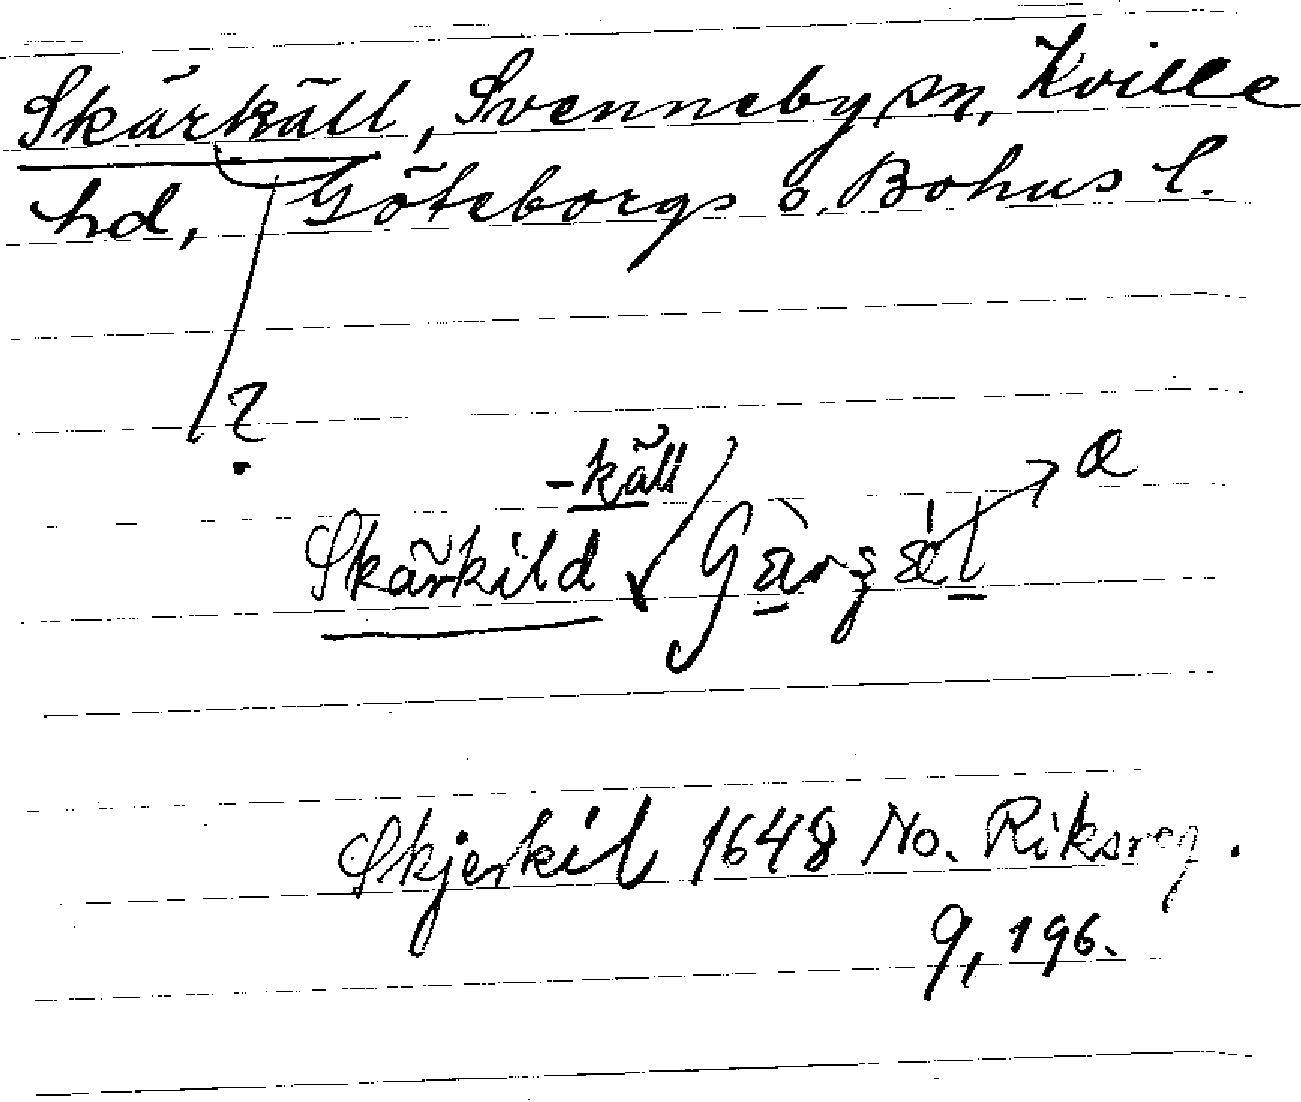 Skärkäll, Svenneby sn, Kville
hd, Göteborgs o. Bohus l.
?
-käll
Skärkild
Skjerkil 1648 No. Riksreg.
9, 196.